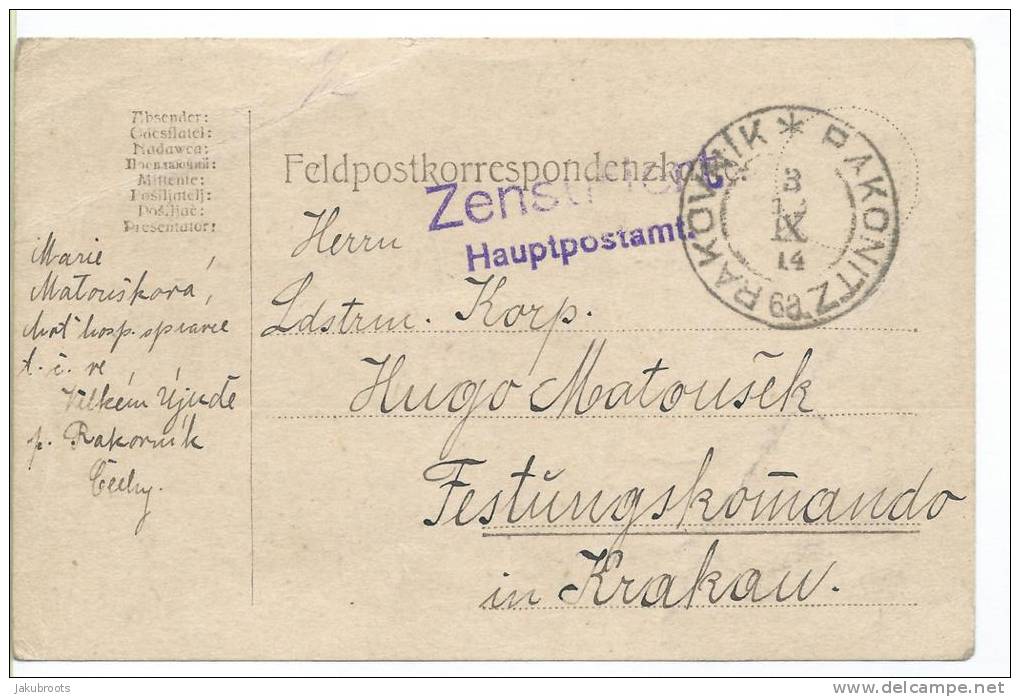 Absender:
Odesílatel:
Nadawca:
Mittente:
Pošiljatelj:
Pošiljač:
Presentator:
Feldpostkorrespondenzkarte.
Zensuriert
Hauptpostamt.
RAKOVNÍK * RAKONITZ
IX
14
6a
Marie
Matoušková,
chot' hosp. správce
t. č. ve
Velkém Újezdě
p. Rakovník
Čechy.
Herrn
Ldstrm. Korp.
Hugo Matoušek
Festungskom̄ando
in Krakau.
jakubroots
www.delcampe.net